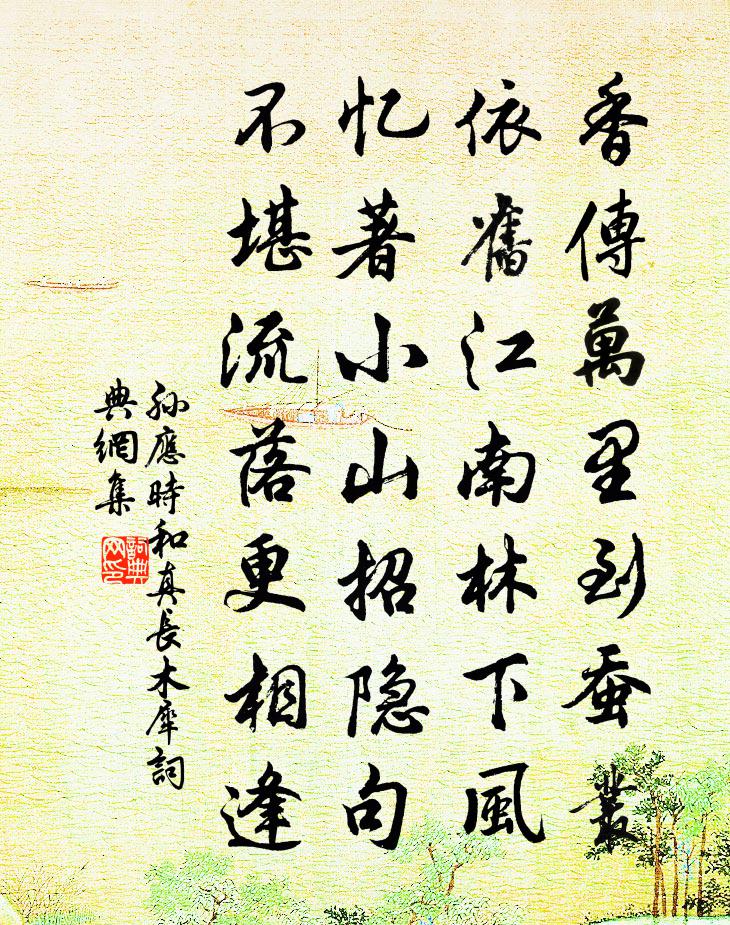 香傳萬里到蚕叢
依舊江南林下風
忆著小山招隐句
不堪流落更相逢
孙應時和真長木犀詞
典網集
詞典
网印